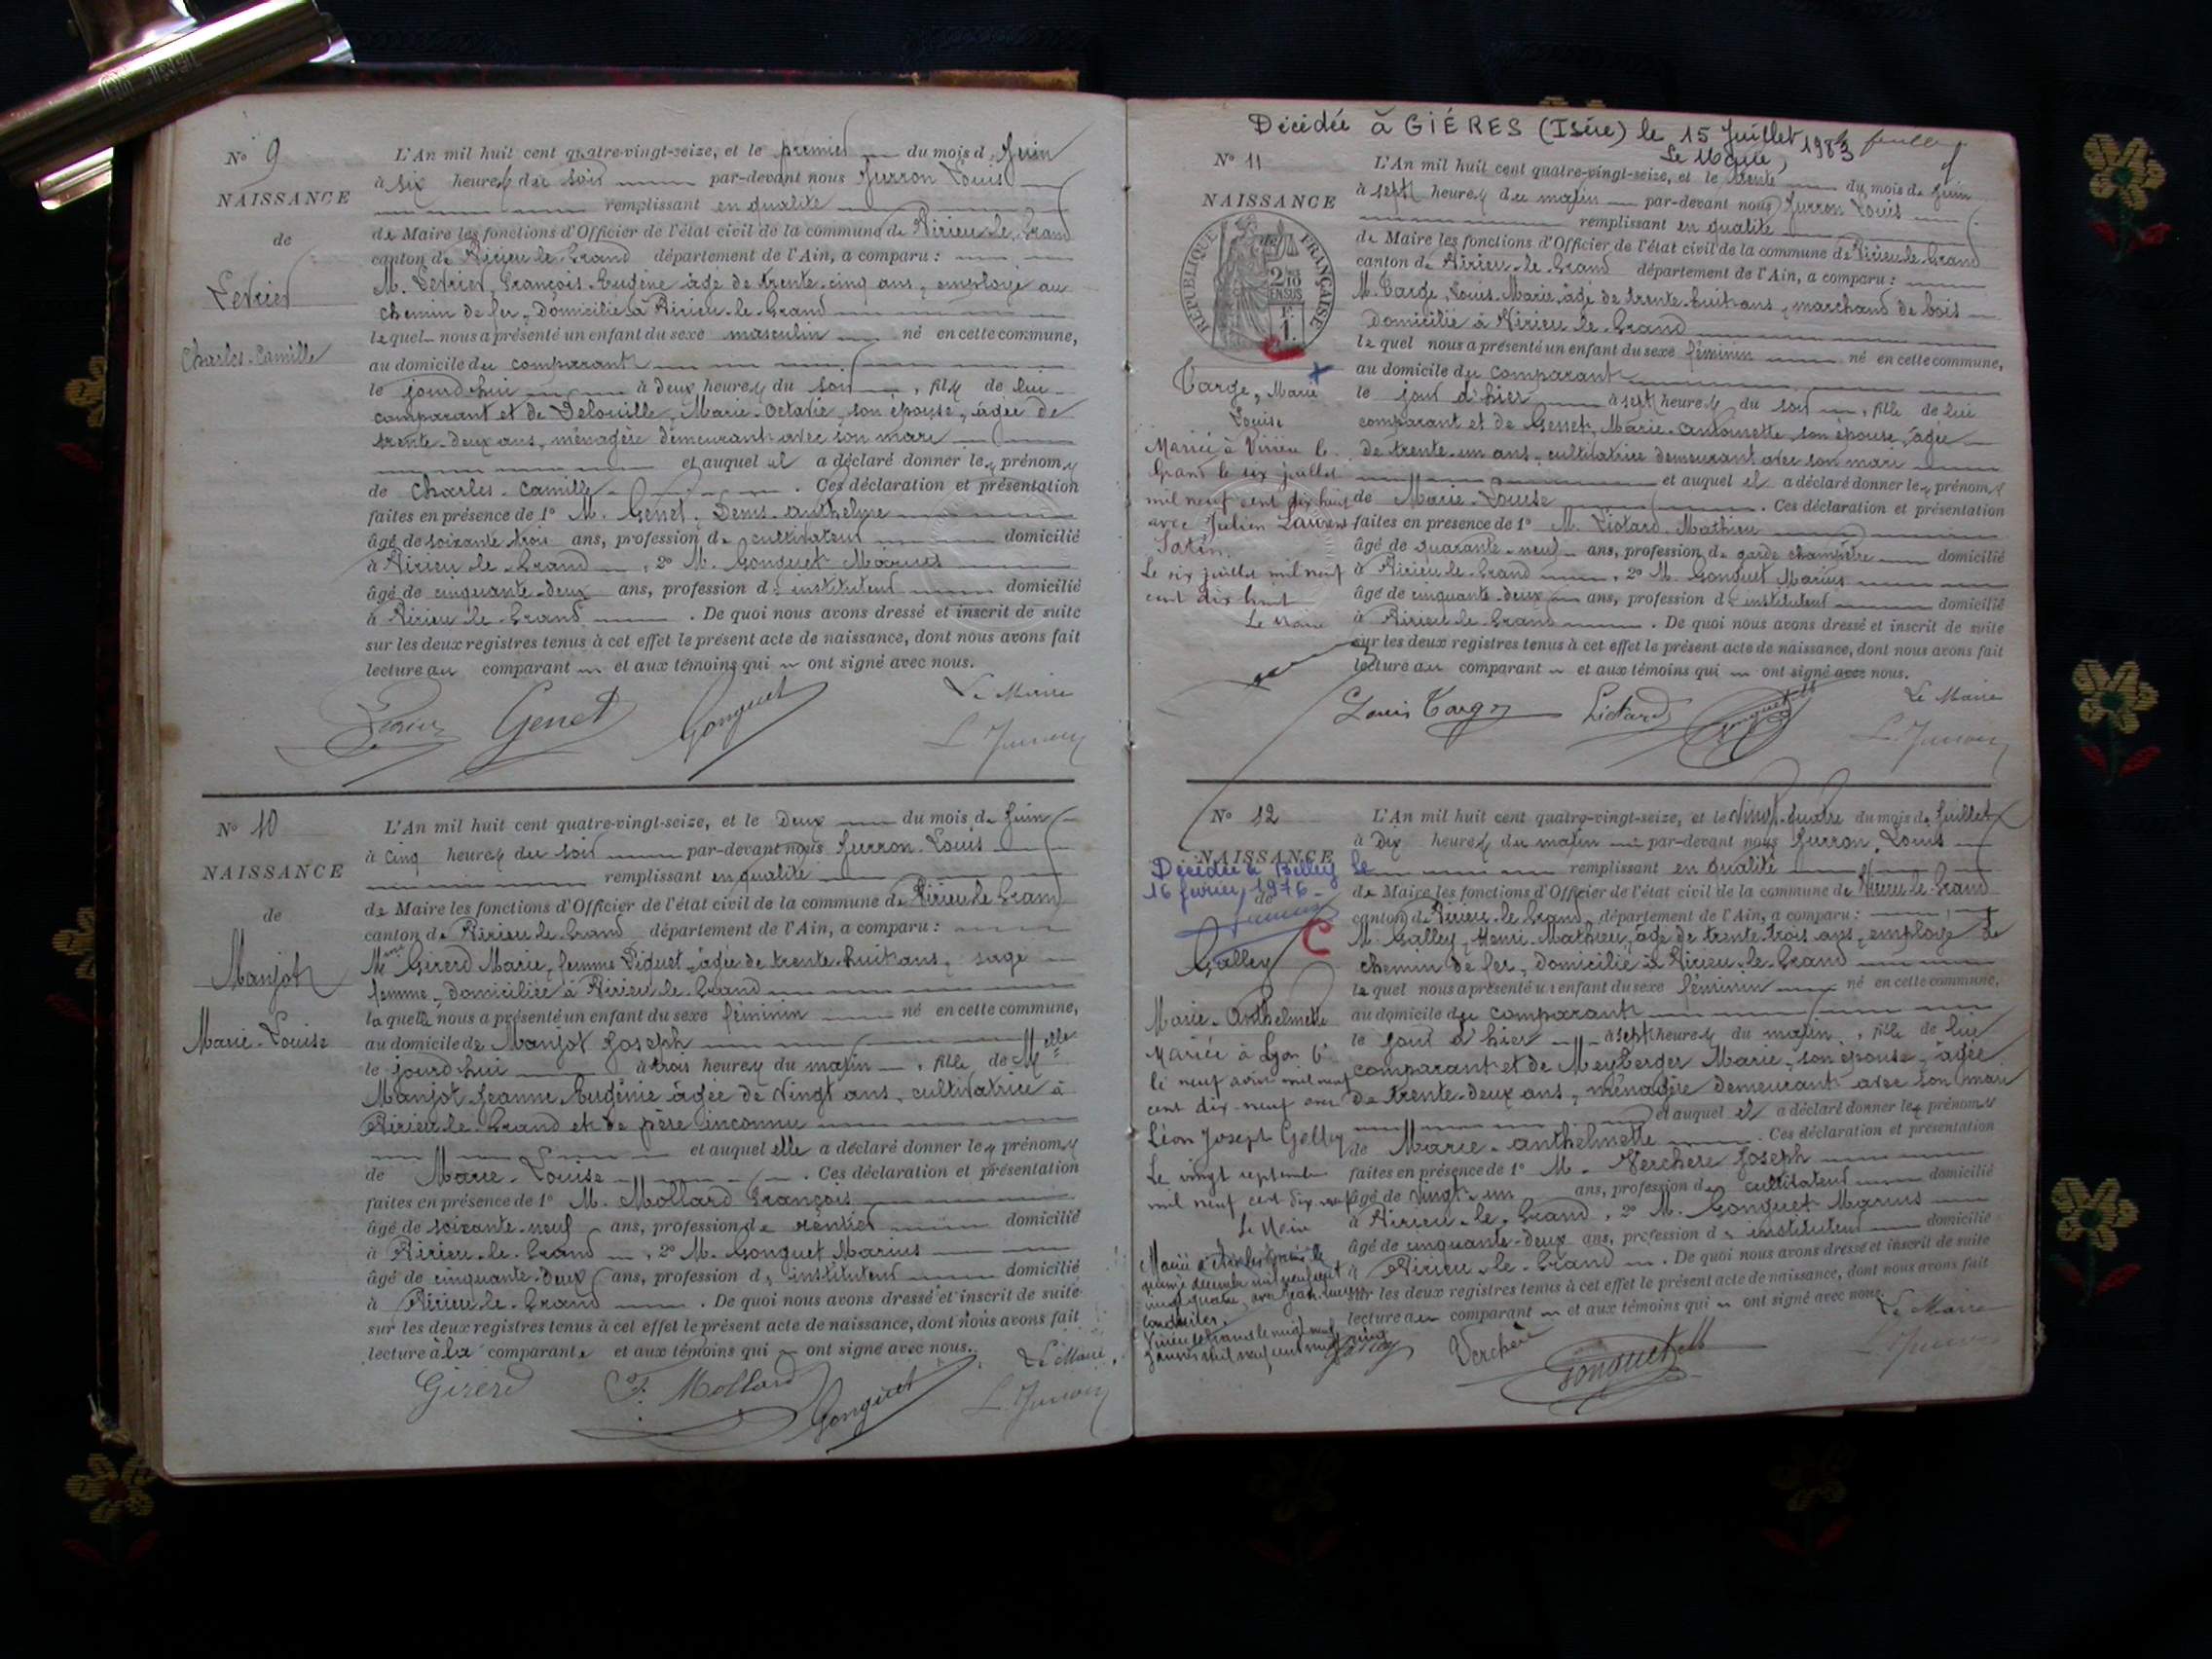 N° 9
NAISSANCE
de
Levrier
Charles-Camille
L'An mil huit cent quatre-vingt-seize, et le premier du mois de Juin
à six heures du soir par-devant nous Jurron Louis
remplissant en qualité
de Maire les fonctions d'Officier de l'état civil de la commune de Virieu-le-Grand
canton de Virieu-le-Grand département de l'Ain, a comparu :
M. Levrier, François-Eugène âgé de trente-cinq ans, employé au
chemin de fer, domicilié à Virieu-le-Grand
lequel nous a présenté un enfant du sexe masculin né en cette commune,
au domicile du comparant
le jourd'hui à deux heures du soir, fils de lui
comparant et de Delouille, Marie-Octavie, son épouse, âgée de
trente-deux ans, ménagère demeurant avec son mari
et auquel il a déclaré donner les prénoms
de Charles-Camille. Ces déclaration et présentation
faites en présence de 1° M. Genet, Denis-Anthelme
âgé de soixante trois ans, profession de cultivateur domicilié
à Virieu-le-Grand, 2° M. Gonguet Marius
âgé de cinquante-deux ans, profession d'instituteur domicilié
à Virieu-le-Grand. De quoi nous avons dressé et inscrit de suite
sur les deux registres tenus à cet effet le présent acte de naissance, dont nous avons fait
lecture au comparant et aux témoins qui ont signé avec nous.
Le Maire
Genet Gonguet L. Jurron
N° 10
NAISSANCE
de
Manjot
Marie-Louise
L'An mil huit cent quatre-vingt-seize, et le deux du mois de Juin
à cinq heures du soir par-devant nous Jurron Louis
remplissant en qualité
de Maire les fonctions d'Officier de l'état civil de la commune de Virieu-le-Grand
canton de Virieu-le-Grand département de l'Ain, a comparu :
Mme Girerd Marie, femme Piquet, âgée de trente-huit ans, sage
femme, domiciliée à Virieu-le-Grand
laquelle nous a présenté un enfant du sexe féminin né en cette commune,
au domicile de Manjot Joseph
le jourd'hui à trois heures du matin, fille de Melle
Manjot Jeanne-Eugénie âgée de vingt ans, cultivatrice à
Virieu-le-Grand et de père inconnu
et auquel elle a déclaré donner les prénoms
de Marie-Louise. Ces déclaration et présentation
faites en présence de 1° M. Mollard François
âgé de soixante-neuf ans, profession de rentier domicilié
à Virieu-le-Grand, 2° M. Gonguet Marius
âgé de cinquante-deux ans, profession d'instituteur domicilié
à Virieu-le-Grand. De quoi nous avons dressé et inscrit de suite
sur les deux registres tenus à cet effet le présent acte de naissance, dont nous avons fait
lecture à la comparante et aux témoins qui ont signé avec nous.
Le Maire
Girerd F. Mollard Gonguet L. Jurron
Décédée à GIÉRES (Isère) le 15 Juillet 1983
Le Maire,
N° 11
NAISSANCE
RÉPUBLIQUE FRANÇAISE
2/10
EN SUS
1 F
Targe, Marie
Louise
Mariée à Virieu le
Grand le six juillet
mil neuf cent dix huit
avec Julien Laurent
Satin.
Le six juillet mil neuf
cent dix huit
Le Maire
L'An mil huit cent quatre-vingt-seize, et le trente du mois de Juin
à sept heures du matin par-devant nous Jurron Louis
remplissant en qualité
de Maire les fonctions d'Officier de l'état civil de la commune de Virieu-le-Grand
canton de Virieu-le-Grand département de l'Ain, a comparu :
M. Targe, Louis-Marie, âgé de trente-huit ans, marchand de bois
domicilié à Virieu-le-Grand
lequel nous a présenté un enfant du sexe féminin né en cette commune,
au domicile du comparant
le jour d'hier à sept heures du soir, fille de lui
comparant et de Genet, Marie-Antoinette, son épouse, âgée
de trente-un ans, cultivatrice demeurant avec son mari
et auquel il a déclaré donner les prénoms
de Marie-Louise. Ces déclaration et présentation
faites en présence de 1° M. Liotard Mathieu
âgé de quarante-neuf ans, profession de garde champêtre domicilié
à Virieu-le-Grand, 2° M. Gonguet Marius
âgé de cinquante-deux ans, profession d'instituteur domicilié
à Virieu-le-Grand. De quoi nous avons dressé et inscrit de suite
sur les deux registres tenus à cet effet le présent acte de naissance, dont nous avons fait
lecture au comparant et aux témoins qui ont signé avec nous.
Le Maire
Louis Targe Liotard Gonguet M L. Jurron
N° 12
NAISSANCE
de
Décédée à Belley le
16 février 1976
C
Galley
Marie-Anthelmette
Mariée à Lyon 6e
le neuf avril mil neuf
cent dix-neuf avec
Léon Joseph Gelley
Le vingt septembre
mil neuf cent dix neuf
Le Maire
L'An mil huit cent quatre-vingt-seize, et le vingt-quatre du mois de Juillet
à dix heures du matin par-devant nous Jurron, Louis
remplissant en qualité
de Maire les fonctions d'Officier de l'état civil de la commune de Virieu-le-Grand
canton de Virieu-le-Grand, département de l'Ain, a comparu :
M. Galley, Henri-Mathieu, âgé de trente-trois ans, employé de
chemin de fer, domicilié à Virieu-le-Grand
lequel nous a présenté un enfant du sexe féminin né en cette commune,
au domicile du comparant
le jour d'hier à sept heures du matin, fille de lui
comparant et de Meyberger Marie, son épouse, âgée
de trente-deux ans, ménagère demeurant avec son mari
et auquel il a déclaré donner les prénoms
de Marie-Anthelmette. Ces déclaration et présentation
faites en présence de 1° M. Verchère Joseph
âgé de vingt-un ans, profession de cultivateur domicilié
à Virieu-le-Grand, 2° M. Gonguet Marius
âgé de cinquante-deux ans, profession d'instituteur domicilié
à Virieu-le-Grand. De quoi nous avons dressé et inscrit de suite
sur les deux registres tenus à cet effet le présent acte de naissance, dont nous avons fait
lecture au comparant et aux témoins qui ont signé avec nous.
Le Maire
Galley Verchère Gonguet M L. Jurron